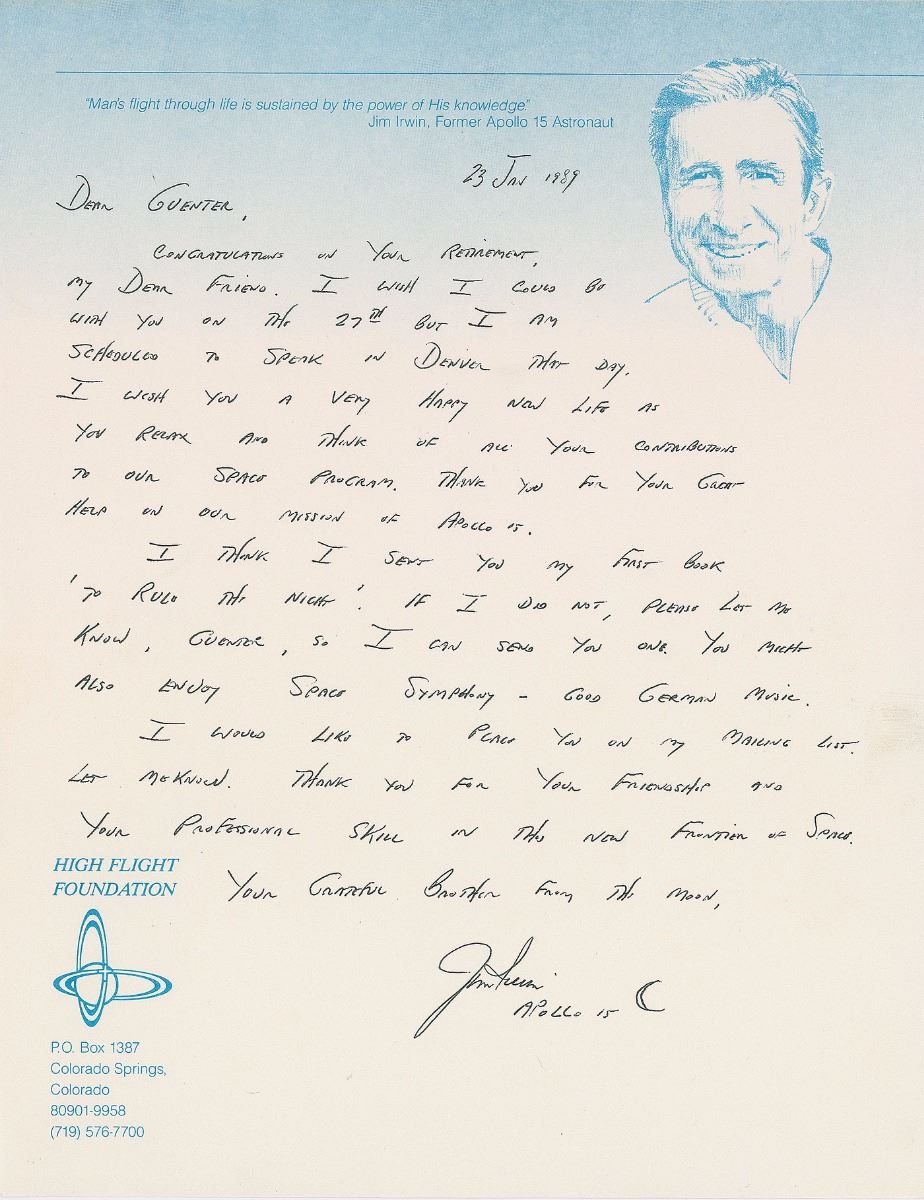 "Man's flight through life is sustained by the power of His knowledge"
Jim Irwin, Former Apollo 15 Astronaut
23 Jan 1989
Dear Guenter,
Congratulations on your retirement,
my dear friend. I wish I could be
with you on the 27th but I am
scheduled to speak in Denver that day.
I wish you a very happy new life as
you relax and think of all your contributions
to our space program. Thank you for your great
help on our mission of Apollo 15.
I think I sent you my first book
'To Rule the Night'. If I did not, please let me
know, Guenter, so I can send you one. You might
also enjoy Space Symphony - good German music.
I would like to place you on my mailing list.
Let me know. Thank you for your friendship and
your professional skill in this new frontier of space.
Your grateful brother from the moon,
Jim Irwin
Apollo 15
HIGH FLIGHT
FOUNDATION
P.O. Box 1387
Colorado Springs,
Colorado
80901-9958
(719) 576-7700